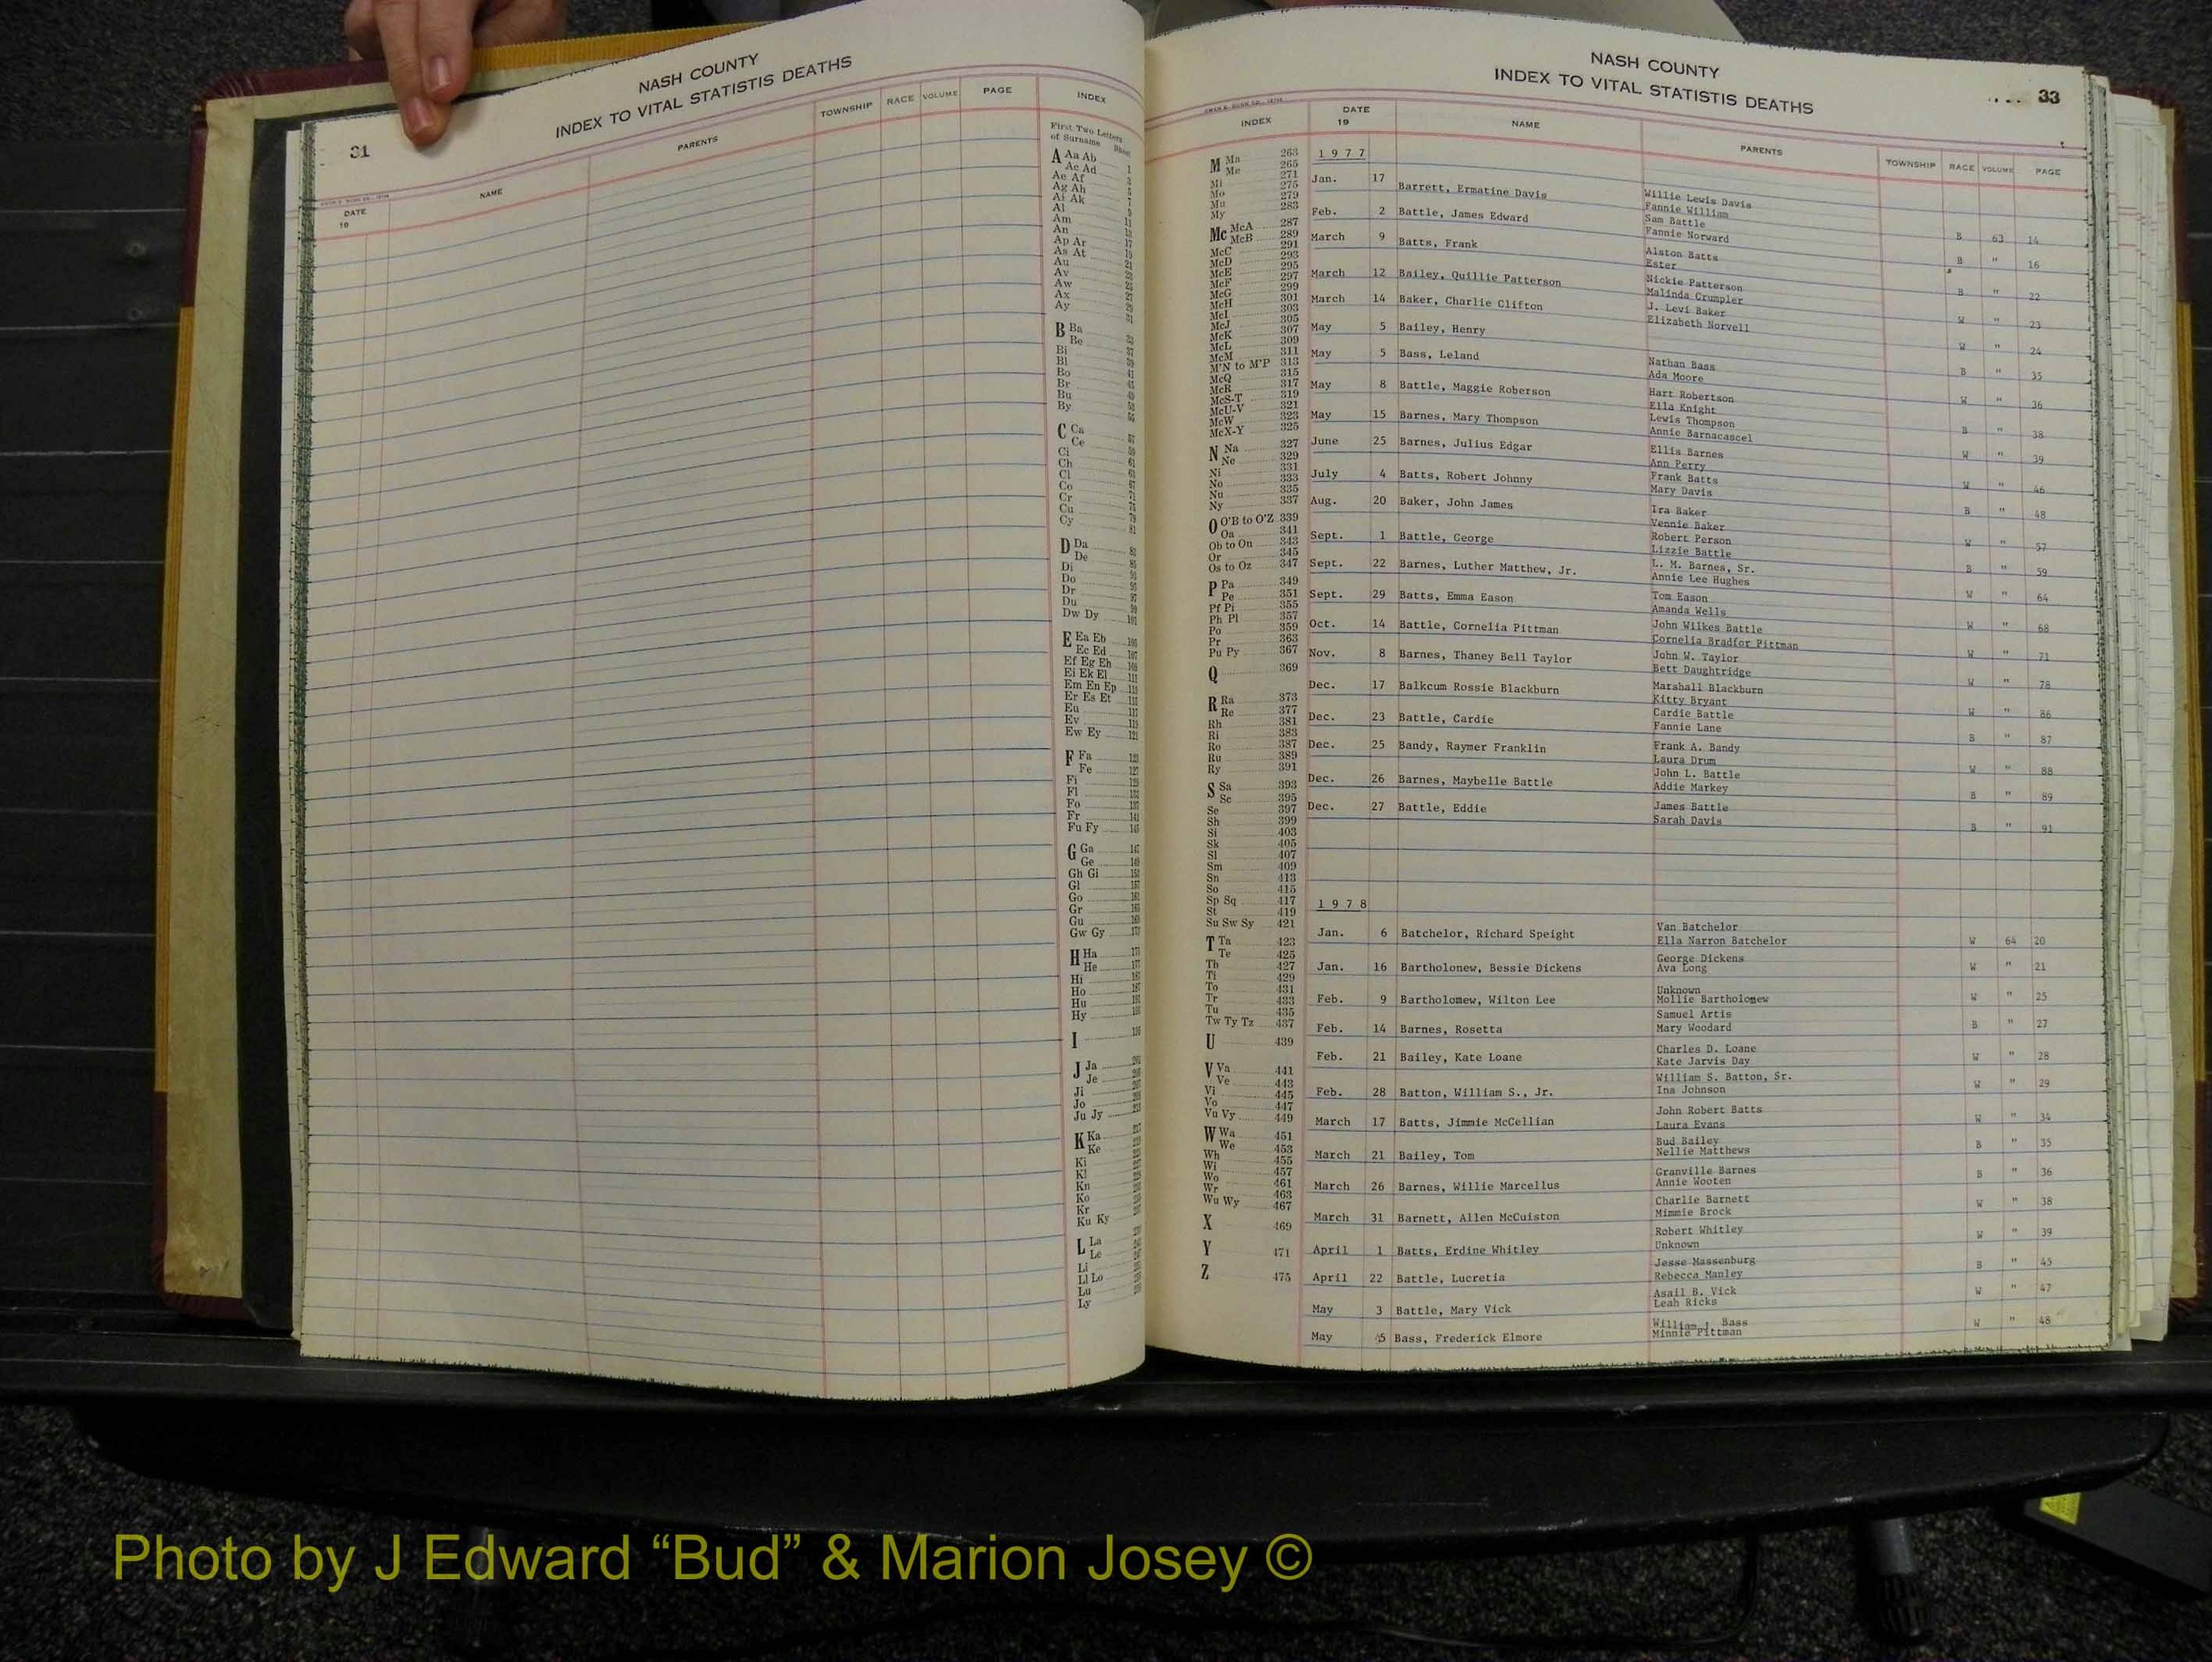 NASH COUNTY
INDEX TO VITAL STATISTIS DEATHS
31
DATE
19
NAME
PARENTS
TOWNSHIP
RACE
VOLUME
PAGE
INDEX
First Two Letters
of Surname
A Aa Ab
Ac Ad
Ae Af
Ag Ah
Ai Ak
Al
Am
An
Ap Ar
As At
Au
Av
Aw
Ax
Ay
B Ba
Be
Bi
Bl
Bo
Br
Bu
By
C Ca
Ce
Ci
Ch
Cl
Co
Cr
Cu
Cy
D Da
De
Di
Do
Dr
Du
Dw Dy
E Ea Eb
Ec Ed
Ef Eg Eh
Ei Ek El
Em En Ep
Er Es Et
Eu
Ev
Ew Ey
F Fa
Fe
Fi
Fl
Fo
Fr
Fu Fy
G Ga
Ge
Gh Gi
Gl
Go
Gr
Gu
Gw Gy
H Ha
He
Hi
Ho
Hu
Hy
I
J Ja
Je
Ji
Jo
Ju Jy
K Ka
Ke
Ki
Kl
Kn
Ko
Kr
Ku Ky
L La
Le
Li
Ll Lo
Lu
Ly
NASH COUNTY
INDEX TO VITAL STATISTIS DEATHS
33
INDEX
M Ma 263
Me 265
Mi 271
Mo 275
Mu 279
My 283
Mc McA 287
McB 289
McC 291
McD 293
McE 295
McF 297
McG 299
McH 301
McI 303
McJ 305
McK 307
McL 309
McM 311
M'N to M'P 313
McQ 315
McR 317
McS-T 319
McU-V 321
McW 323
McX-Y 325
N Na 327
Ne 329
Ni 331
No 333
Nu 335
Ny 337
O O'B to O'Z 339
Oa 341
Ob to On 343
Or 345
Os to Oz 347
P Pa 349
Pe 351
Pf Pi 355
Ph Pl 357
Po 359
Pr 363
Pu Py 367
Q 369
R Ra 373
Re 377
Rh 381
Ri 383
Ro 387
Ru 389
Ry 391
S Sa 393
Sc 395
Se 397
Sh 399
Si 403
Sk 405
Sl 407
Sm 409
Sn 413
So 415
Sp Sq 417
St 419
Su Sw Sy 421
T Ta 423
Te 425
Th 427
Ti 429
To 431
Tr 433
Tu 435
Tw Ty Tz 437
U 439
V Va 441
Ve 443
Vi 445
Vo 447
Vu Vy 449
W Wa 451
We 453
Wh 455
Wi 457
Wo 461
Wr 463
Wu Wy 467
X 469
Y 471
Z 475
DATE
19
NAME
PARENTS
TOWNSHIP
RACE
VOLUME
PAGE
1977
Jan. 17 Barrett, Ermatine Davis Willie Lewis Davis
Fannie William B 63 14
Feb. 2 Battle, James Edward Sam Battle
Fannie Norward B " 16
March 9 Batts, Frank Alston Batts
Ester B " 22
March 12 Bailey, Quillie Patterson Nickie Patterson
Malinda Crumpler W " 23
March 14 Baker, Charlie Clifton J. Levi Baker
Elizabeth Norvell W " 24
May 5 Bailey, Henry B " 35
May 5 Bass, Leland Nathan Bass
Ada Moore W " 36
May 8 Battle, Maggie Roberson Hart Robertson
Ella Knight B " 38
May 15 Barnes, Mary Thompson Lewis Thompson
Annie Barnacascel W " 39
June 25 Barnes, Julius Edgar Ellis Barnes
Ann Perry W " 46
July 4 Batts, Robert Johnny Frank Batts
Mary Davis B " 48
Aug. 20 Baker, John James Ira Baker
Vennie Baker W " 57
Sept. 1 Battle, George Robert Person
Lizzie Battle B " 59
Sept. 22 Barnes, Luther Matthew, Jr. L. M. Barnes, Sr.
Annie Lee Hughes W " 64
Sept. 29 Batts, Emma Eason Tom Eason
Amanda Wells W " 68
Oct. 14 Battle, Cornelia Pittman John Wilkes Battle
Cornelia Bradfor Pittman W " 71
Nov. 8 Barnes, Thaney Bell Taylor John W. Taylor
Bett Daughtridge W " 78
Dec. 17 Balkcum Rossie Blackburn Marshall Blackburn
Kitty Bryant W " 86
Dec. 23 Battle, Cardie Cardie Battle
Fannie Lane B " 87
Dec. 25 Bandy, Raymer Franklin Frank A. Bandy
Laura Drum W " 88
Dec. 26 Barnes, Maybelle Battle John L. Battle
Addie Markey B " 89
Dec. 27 Battle, Eddie James Battle
Sarah Davis B " 91
1978
Jan. 6 Batchelor, Richard Speight Van Batchelor
Ella Narron Batchelor W 64 20
Jan. 16 Bartholonew, Bessie Dickens George Dickens
Ava Long W " 21
Feb. 9 Bartholomew, Wilton Lee Unknown
Mollie Bartholomew W " 25
Feb. 14 Barnes, Rosetta Samuel Artis
Mary Woodard B " 27
Feb. 21 Bailey, Kate Loane Charles D. Loane
Kate Jarvis Day W " 28
Feb. 28 Batton, William S., Jr. William S. Batton, Sr.
Ina Johnson W " 29
March 17 Batts, Jimmie McCellian John Robert Batts
Laura Evans W " 34
March 21 Bailey, Tom Bud Bailey
Nellie Matthews B " 35
March 26 Barnes, Willie Marcellus Granville Barnes
Annie Wooten B " 36
March 31 Barnett, Allen McCuiston Charlie Barnett
Mimmie Brock W " 38
April 1 Batts, Erdine Whitley Robert Whitley
Unknown W " 39
April 22 Battle, Lucretia Jesse Massenburg
Rebecca Manley B " 45
May 3 Battle, Mary Vick Asail B. Vick
Leah Ricks W " 47
May 5 Bass, Frederick Elmore William Bass
Minnie Pittman W " 48
Photo by J Edward “Bud” & Marion Josey ©